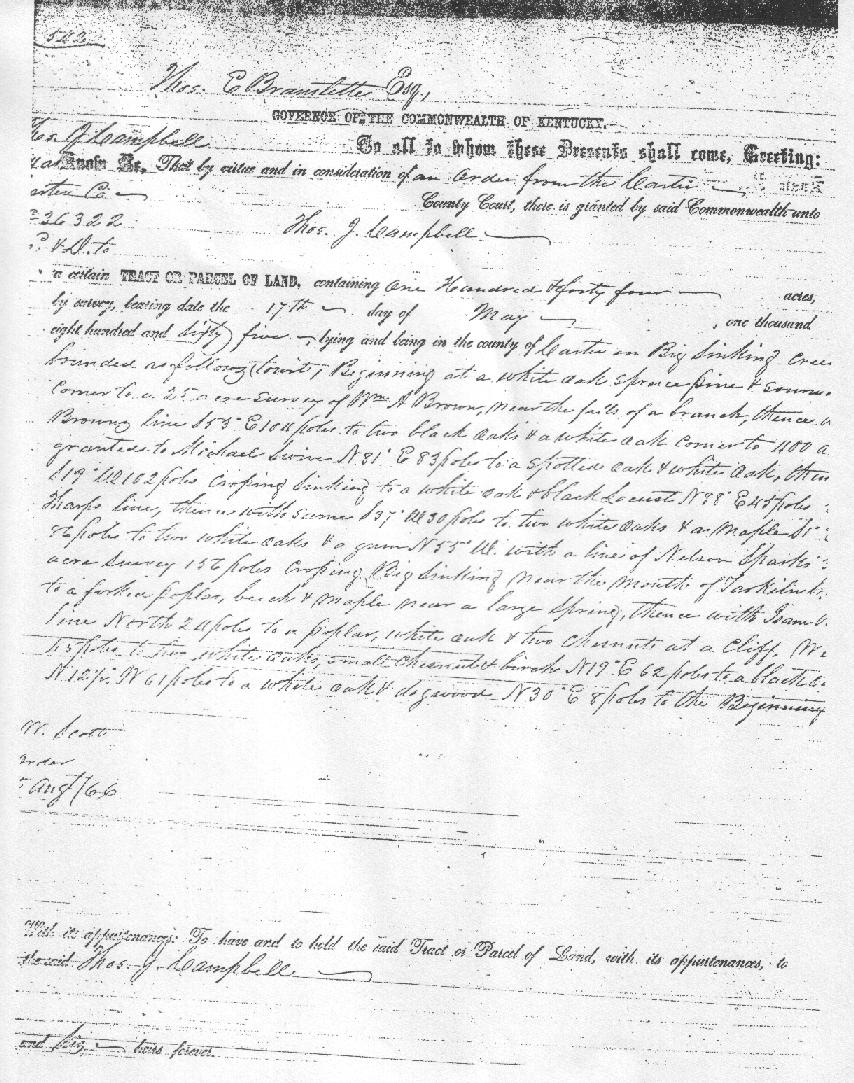 543
Thos. E Bramlette Esq,
GOVERNOR OF THE COMMONWEALTH OF KENTUCKY.
Thos. J Campbell
To all to whom these Presents shall come, Greeting:
Know Ye, That by virtue and in consideration of an order from the Carter
Co
County Court, there is granted by said Commonwealth unto
36322
Thos. J. Campbell
& D. to
a certain TRACT OR PARCEL OF LAND, containing One Hundred & forty four acres,
by survey, bearing date the 17th day of May, one thousand
eight hundred and sixty five lying and being in the county of Carter on Big Sinking Cree
bounded as follows, towit, Beginning at a white oak spruce pine &
corner to a 25 acre survey of Wm A Brown, near the falls of a branch, thence
Browns line S 55° E 104 poles to two black oaks & a white oak corner to 400 a
granted to Michael N 81° E 83 poles to a spotted oak & white oak, then
S 19° W 102 poles Crossing Sinking to a white oak & black Locust N 88° E 45 poles
Tharps line, thence with same S 37° W 30 poles to two white oaks & a maple
86 poles to two white oaks & a gum N 55° W. with a line of Nelson Sparks
acre survey 156 poles Crossing Big Sinking near the mouth of
to a forked poplar, beech & maple near a large spring, thence with
line North 24 poles to a poplar, white oak & two chesnuts at a cliff
poles to two white oaks, small chesnut & birch N 19° E 62 poles to a black
N 12½ W 61 poles to a white oak & dogwood N 30° E 8 poles to the Beginning
W. Scott
Augt/66
With its appurtenances: To have and to hold the said Tract or Parcel of Land, with its appurtenances, to
the said Thos. J. Campbell
and his heirs forever.